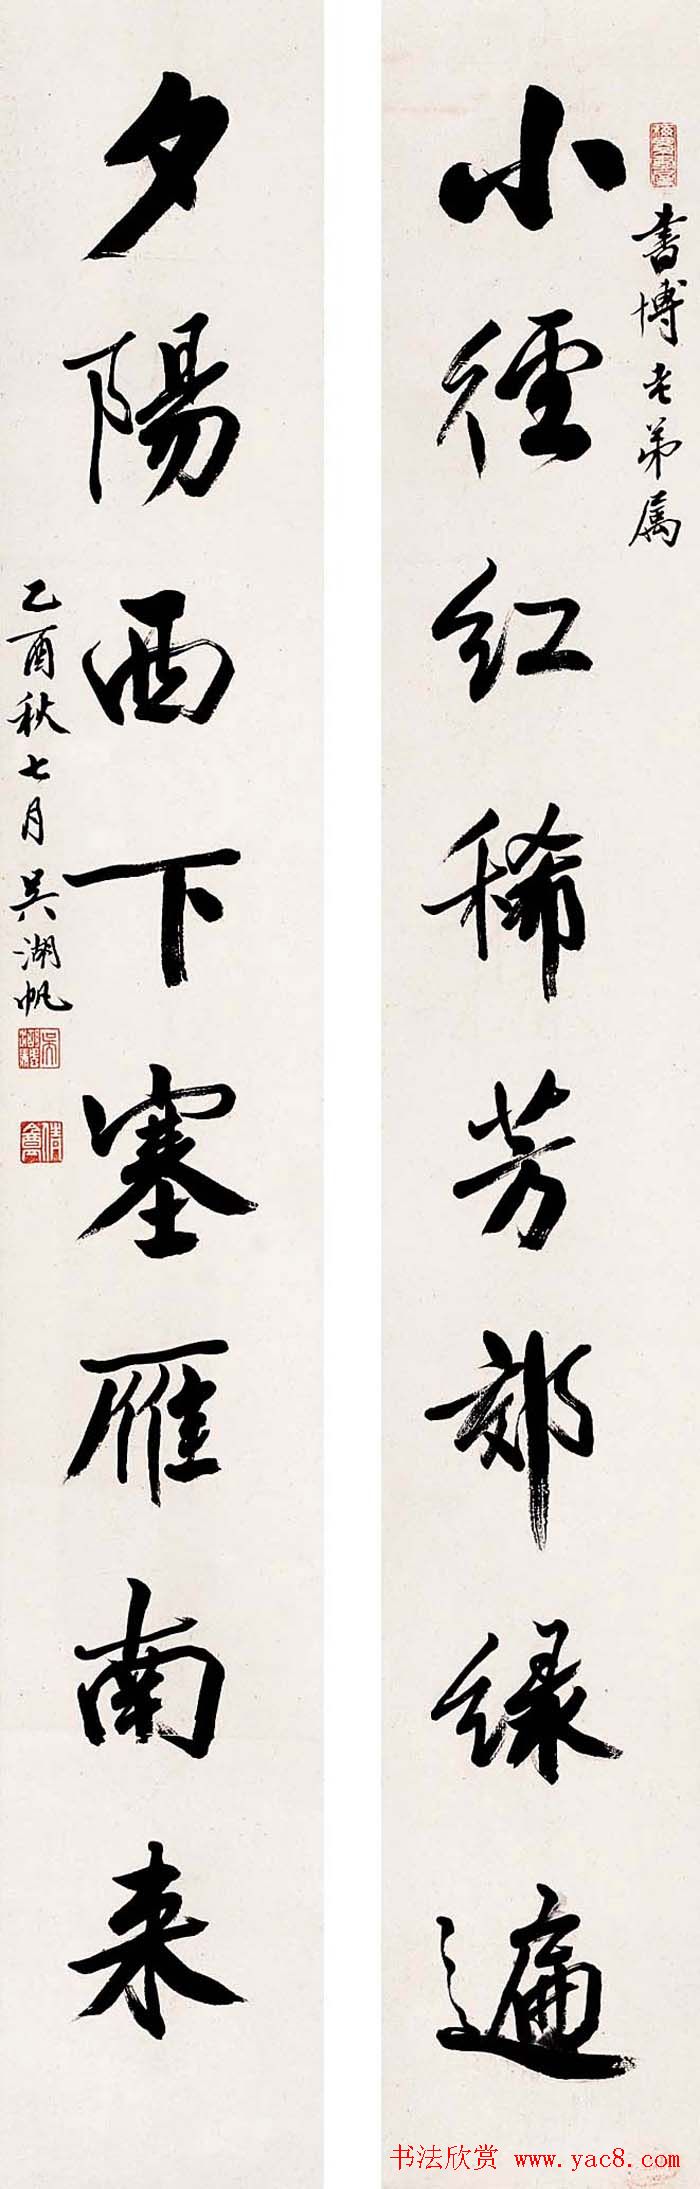 書博老弟属
小徑红稀芳郊绿遍
夕陽西下塞雁南来
乙酉秋七月吴湖帆
书法欣赏 www.yac8.com